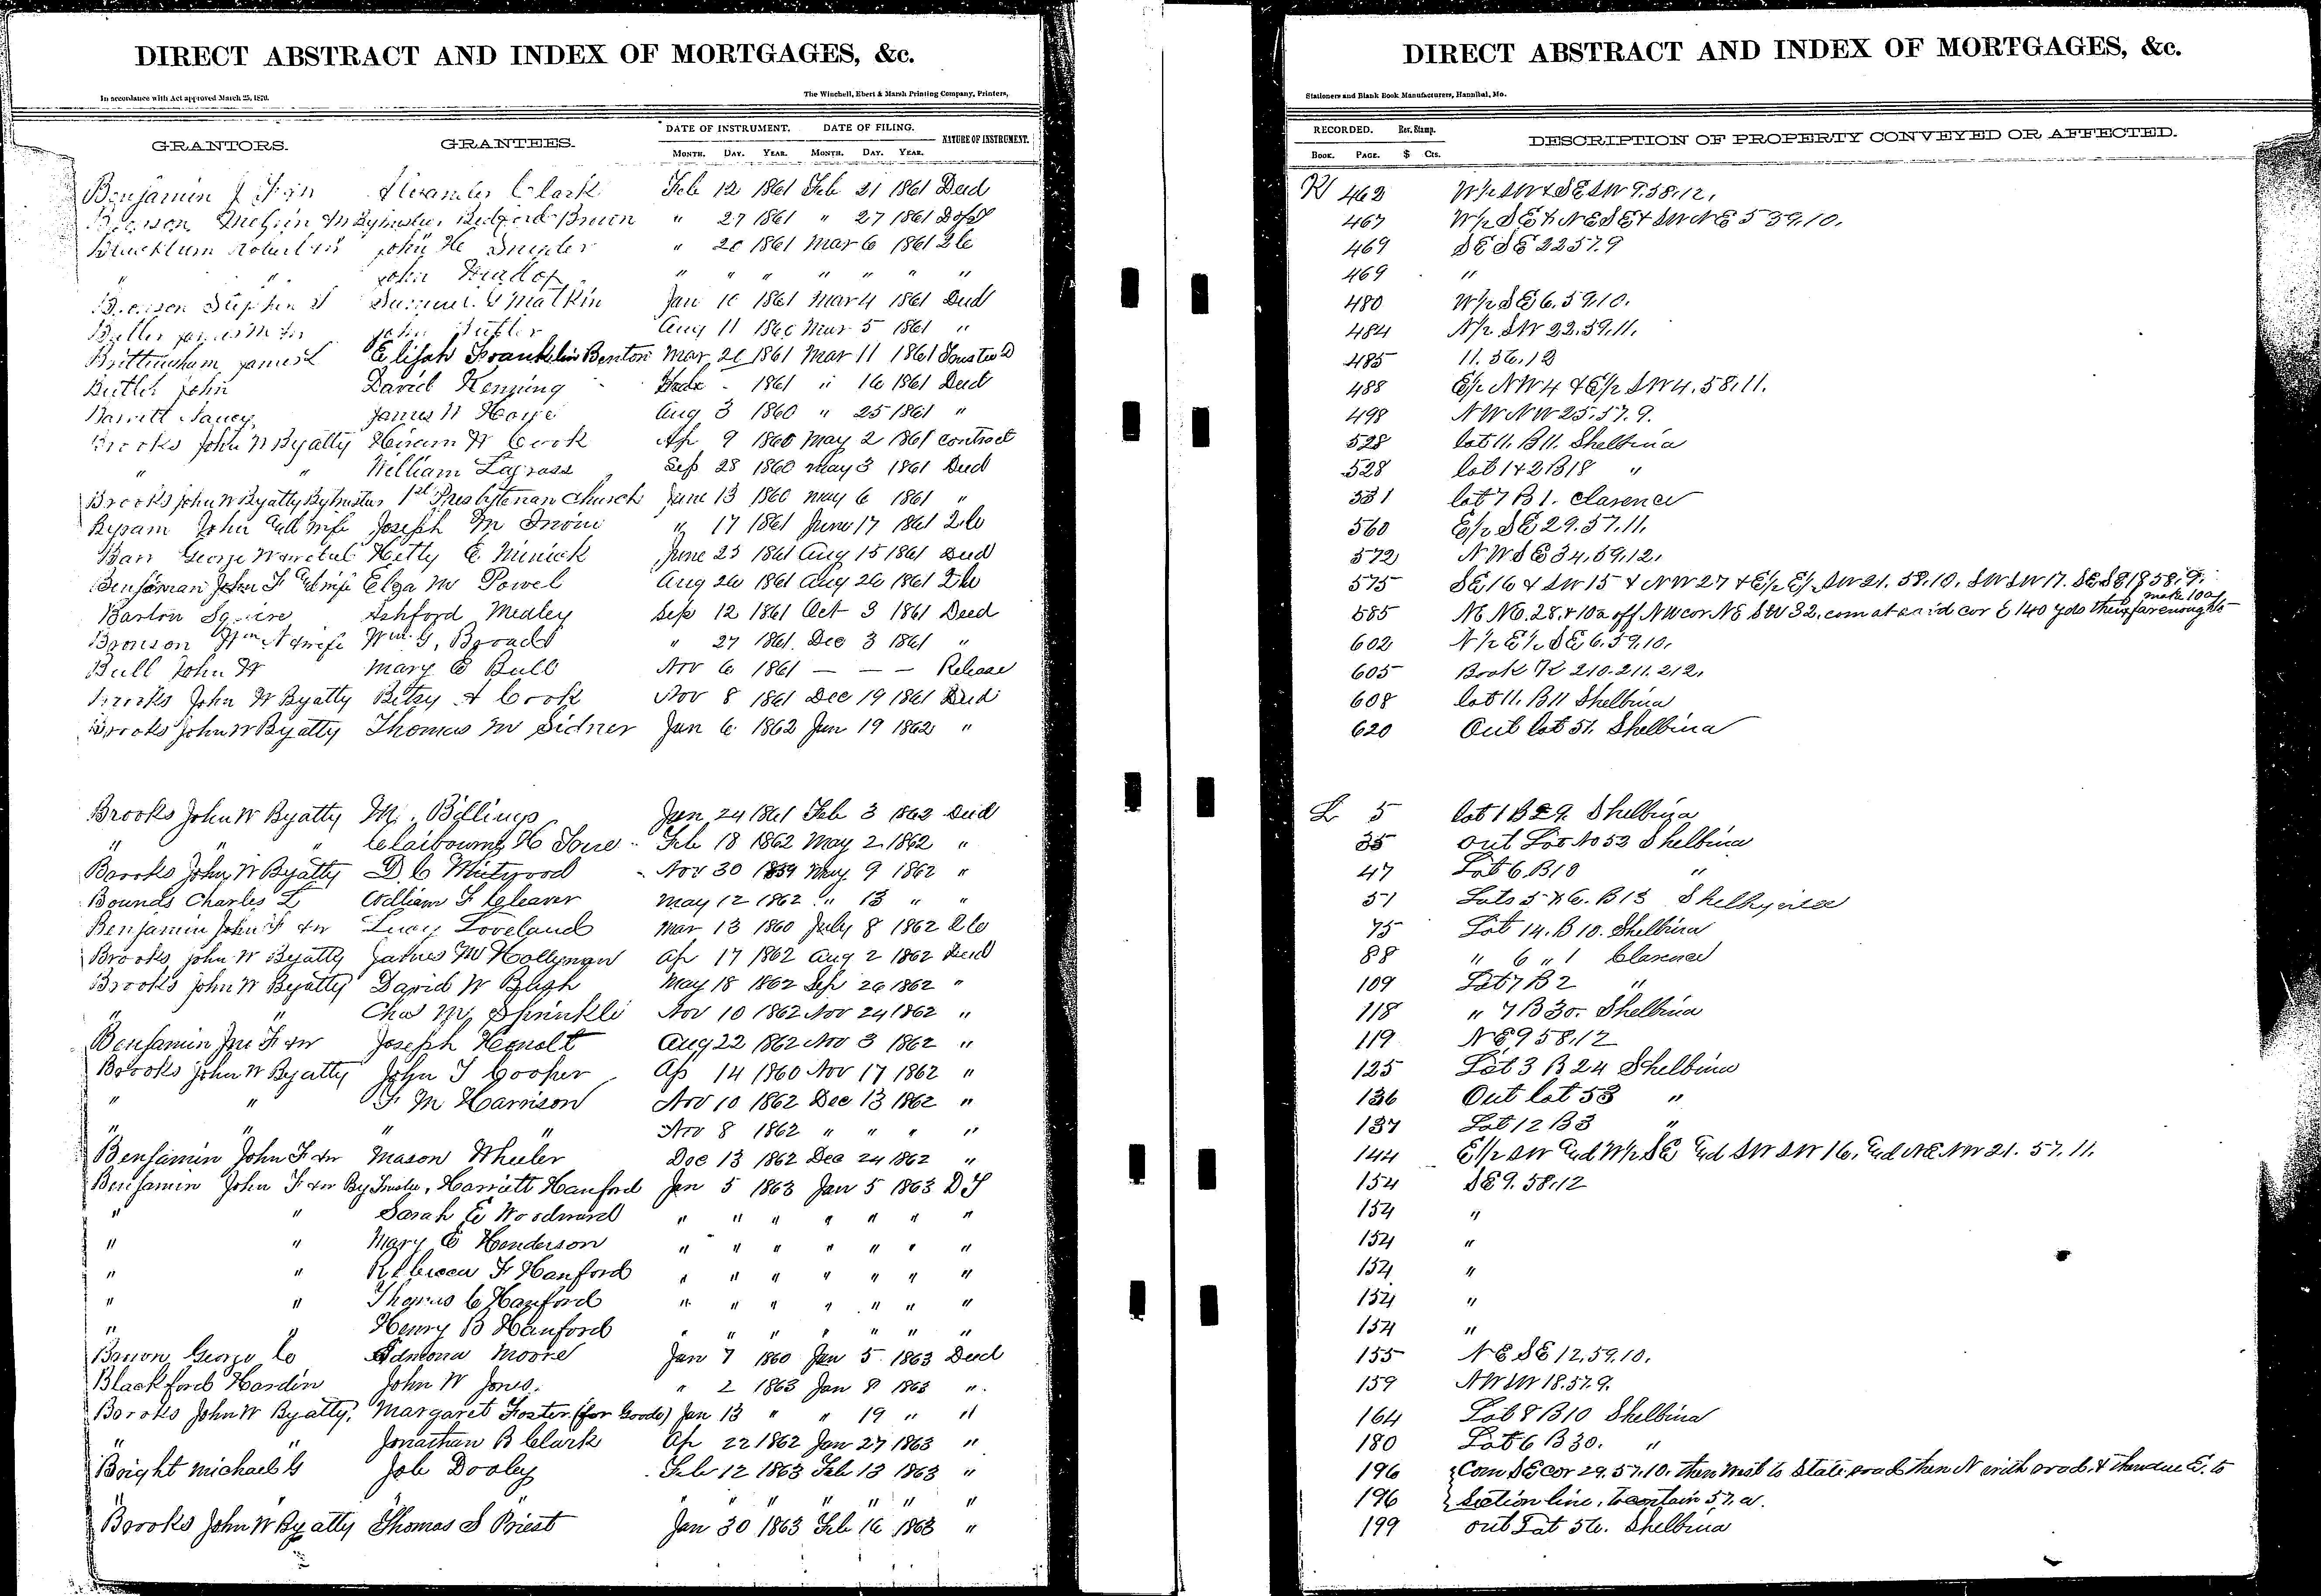 DIRECT ABSTRACT AND INDEX OF MORTGAGES, &c.
In accordance with Act approved March 25, 1870.
The Winchell, Ebert & Marsh Printing Company, Printers,
GRANTORS. GRANTEES. DATE OF INSTRUMENT. DATE OF FILING. NATURE OF INSTRUMENT.
MONTH. DAY. YEAR. MONTH. DAY. YEAR.
Benjamin J F & w Alexander Clark Feb 12 1861 Feb 21 1861 Deed
Bedford Brown " 27 1861 " 27 1861 D of T
John H Snider " 20 1861 Mar 6 1861 2 C
" " John " " " " " " "
Stephen S Matkin Jan 10 1861 Mar 4 1861 Deed
Butler James M & w John Butler Aug 11 1860 Mar 5 1861 "
Brittingham James L Elijah Franklin Benton Mar 20 1861 Mar 11 1861 Trustee D
Butler John David Kenning - 1861 " 16 1861 Deed
Barrett Nancy James N Hoye Aug 3 1860 " 25 1861 "
Brooks John W By atty Hiram W Cook Ap 9 1860 May 2 1861 Contract
" " William Lagrass Sep 28 1860 May 3 1861 Deed
Brooks John W By atty By trustee 1st Presbyterian Church June 13 1860 May 6 1861 "
Bysam John and wife Joseph M Irvin " 17 1861 June 17 1861 2 C
Barr George W Hetty E. Minick June 25 1861 Aug 15 1861 Deed
Benjaman John F and wife Elza M Powel Aug 26 1861 Aug 26 1861 2 C
Barton Squire Ashford Medley Sep 12 1861 Oct 3 1861 Deed
Bronson Wm A & wife Wm G. Broadd " 27 1861. Dec 3 1861 "
Bull John W Mary E Bull Nov 6 1861 — — — Release
Brooks John W By atty Betsy A Cook Nov 8 1861 Dec 19 1861 Deed
Brooks John W By atty Thomas M Sidner Jan 6 1862 Jan 19 1862 "
Brooks John W By atty M. Billings Jan 24 1861 Feb 3 1862 Deed
" " Claibourne H Feb 18 1862 May 2 1862 "
Brooks John W By atty D. C Mitwood Nov 30 1859 May 9 1862 "
Bounds Charles L William F Cleaver May 12 1862 " 13 " "
Benjamin John F & w Lucy Loveland Mar 13 1860 July 8 1862 2 C
Brooks John W By atty James M Hollyman Ap 17 1862 Aug 2 1862 Deed
Brooks John W By atty David W Bush May 18 1862 Sep 26 1862 "
" " Chas M Sprinkle Nov 10 1862 Nov 24 1862 "
Benjamin Jno F & w Joseph Aug 22 1862 Nov 3 1862 "
Brooks John W By atty John T Cooper Ap 14 1860 Nov 17 1862 "
" " F. M Harrison Nov 10 1862 Dec 13 1862 "
" " " " Nov 8 1862 " " " "
Benjamin John F & w Mason Wheeler Dec 13 1862 Dec 24 1862 "
Benjamin John F & w By Trustee, Harriett Hanford Jan 5 1863 Jan 5 1863 D T
" " Sarah E Woodward " " " " " " "
" " Mary E Henderson " " " " " " "
" " Rebecca F Hanford " " " " " " "
" " Thomas C Hanford " " " " " " "
" " Henry B Hanford " " " " " " "
Brown George C Edmond Moore Jan 7 1860 Jan 5 1863 Deed
Blackford Hardin John W Jones. " 2 1863 Jan 8 1863 "
Brooks John W By atty, Margaret Foster (for Goods) Jan 13 " " 19 " "
" " Jonathan B Clark Ap 22 1862 Jan 27 1863 "
Bright Michael G Job Dooley Feb 12 1863 Feb 13 1863 "
" " " " " " " "
Brooks John W By atty Thomas S Priest Jan 30 1863 Feb 16 1863 "
DIRECT ABSTRACT AND INDEX OF MORTGAGES, &c.
Stationers and Blank Book Manufacturers, Hannibal, Mo.
RECORDED. Rev. Stamp. DESCRIPTION OF PROPERTY CONVEYED OR AFFECTED.
BOOK. PAGE. $ Cts.
K 462 W/2 SW & SE SW 9.58.12.
467 W/2 SE & NE SE & SW NE 5 59.10.
469 SE SE 22 57.9
469 "
480 W/2 SE 6.59.10.
484 N/2 SW 22.59.11.
485 11.56.12
488 E/2 NW 4 & E/2 SW 4.58.11.
498 NW NW 25.57.9.
528 lot 11. B 11. Shelbina
528 lot 1 & 2 B 18 "
531 lot 7 B 1. Clarence
560 E/2 SE 29.57.11.
572 NW SE 34.59.12.
575 SE 16 & SW 15 & NW 27 & E/2 E/2 SW 21. 58.10. SW SW 17. SE SE 18 58.9.
585 NE NE. 28. & 10a off NW cor NE SW 32. com at said cor E 140 yds then S far enough to make 10a
602 N/2 E/2 SE 6.59.10.
605 Book K 210.211.212.
608 lot 11. B 11 Shelbina
620 Out lot 51. Shelbina
L 5 lot 1 B 29. Shelbina
35 out Lot No 52 Shelbina
47 Lot 6. B 10 "
51 Lots 5 & 6. B 13 Shelbyville
75 Lot 14. B 10. Shelbina
88 " 6 " 1 Clarence
109 Lot 7 B 2 "
118 " 7 B 30. Shelbina
119 NE 9 58.12
125 Lot 3 B 24 Shelbina
136 Out lot 53 "
137 Lot 12 B 3 "
144 E/2 SW and W/2 SE and SW SW 16. and NE NW 21. 57.11.
154 SE 9. 58.12
154 "
154 "
154 "
154 "
154 "
155 NE SE 12.59.10.
159 NW SW 18.57.9.
164 Lot 8 B 10 Shelbina
180 Lot 6 B 30. "
196 Com SE cor 29.57.10. then West to State road then N with road, & thence E. to
196 Section line, to contain 57. a.
199 out Lot 56. Shelbina